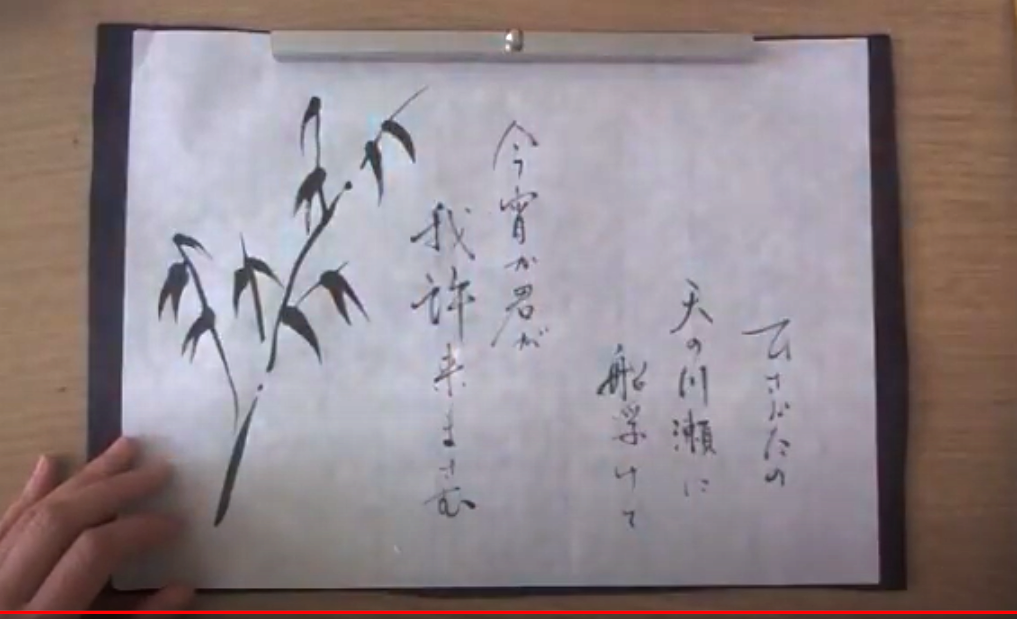 ひさかたの
天の川瀬に
船浮けて
今宵か君が
我許来まさむ